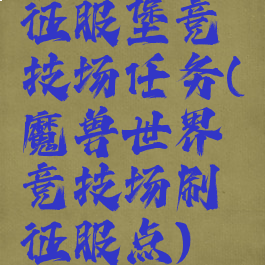 征服堡竞
技场任务(
魔兽世界
竞技场刷
征服点)